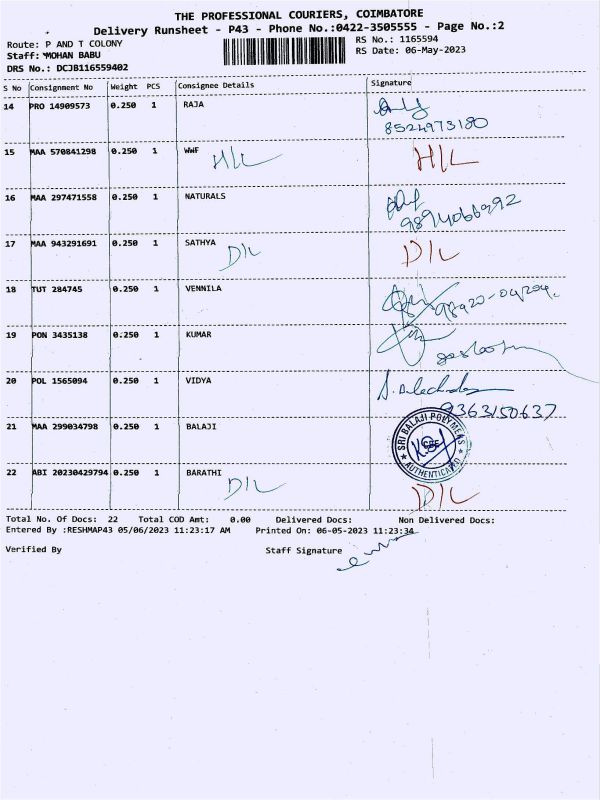 THE PROFESSIONAL COURIERS, COIMBATORE
Delivery Runsheet - P43 - Phone No.:0422-3505555 - Page No.:2
Route: P AND T COLONY
RS No.: 1165594
Staff: MOHAN BABU
RS Date: 06-May-2023
DRS No.: DCJB116559402
S No Consignment No Weight PCS Consignee Details Signature
14 PRO 14909573 0.250 1 RAJA
8524973180
15 MAA 570841298 0.250 1 WWF H/L H/L
16 MAA 297471558 0.250 1 NATURALS
17 MAA 943291691 0.250 1 SATHYA D/L D/L
18 TUT 284745 0.250 1 VENNILA
19 PON 3435138 0.250 1 KUMAR
20 POL 1565094 0.250 1 VIDYA
9363150637
21 MAA 299034798 0.250 1 BALAJI
SRI BALAJI POLYMERS
AUTHENTICATED
22 ABI 20230429794 0.250 1 BARATHI D/L D/L
Total No. Of Docs: 22 Total COD Amt: 0.00 Delivered Docs: Non Delivered Docs:
Entered By :RESHMAP43 05/06/2023 11:23:17 AM Printed On: 06-05-2023 11:23:34
Verified By Staff Signature